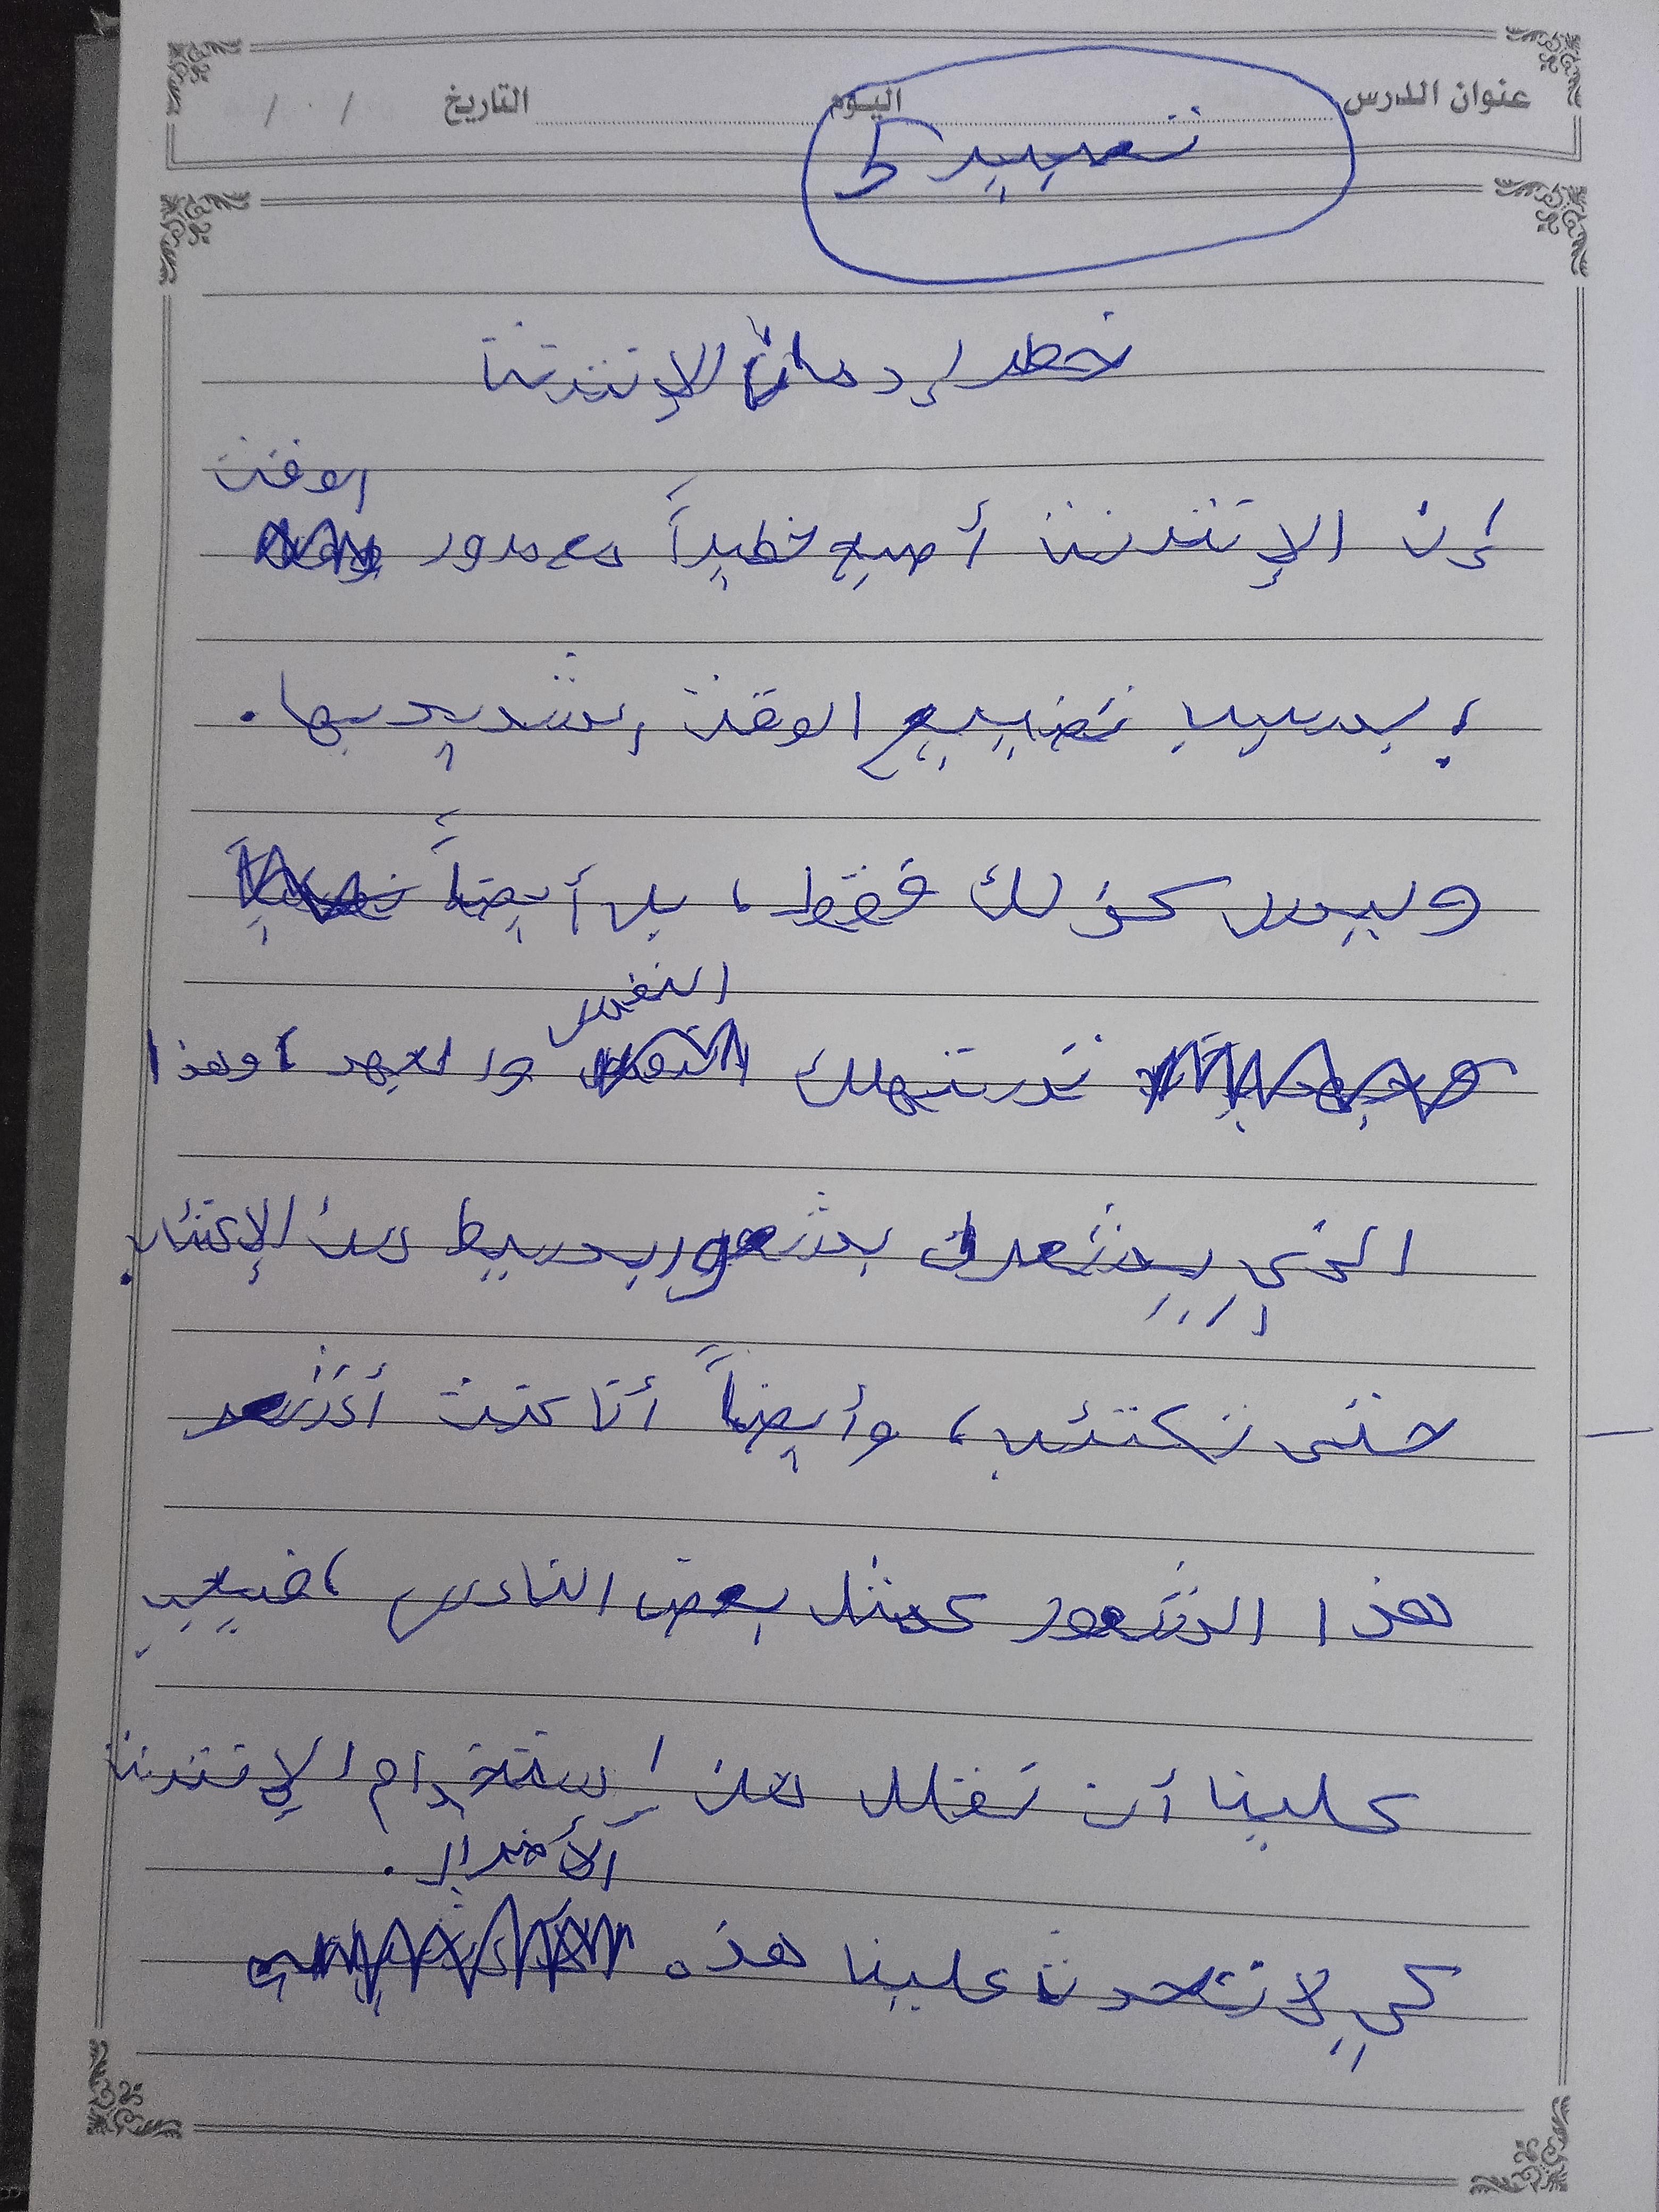 عنوان الدرس اليوم التاريخ / /
تعبير 5
خطر إدمان الإنترنت
إن الإنترنت أصبح خطيراً مع مرور الوقت
؛ بسبب تضييع الوقت الشديد بها.
وليس كذلك فقط، بل أيضاً
تستهلك النفس والجهد، وهذا
الذي يشعرك بشعور بسيط من الإكتئاب.
حتى تكتئب، وأيضاً أنا كنت أشعر
هذا الشعور كمثل بعض الناس، فيجب
علينا أن نقلل من إستخدام الإنترنت
كي لا تحدث علينا هذه الأضرار.